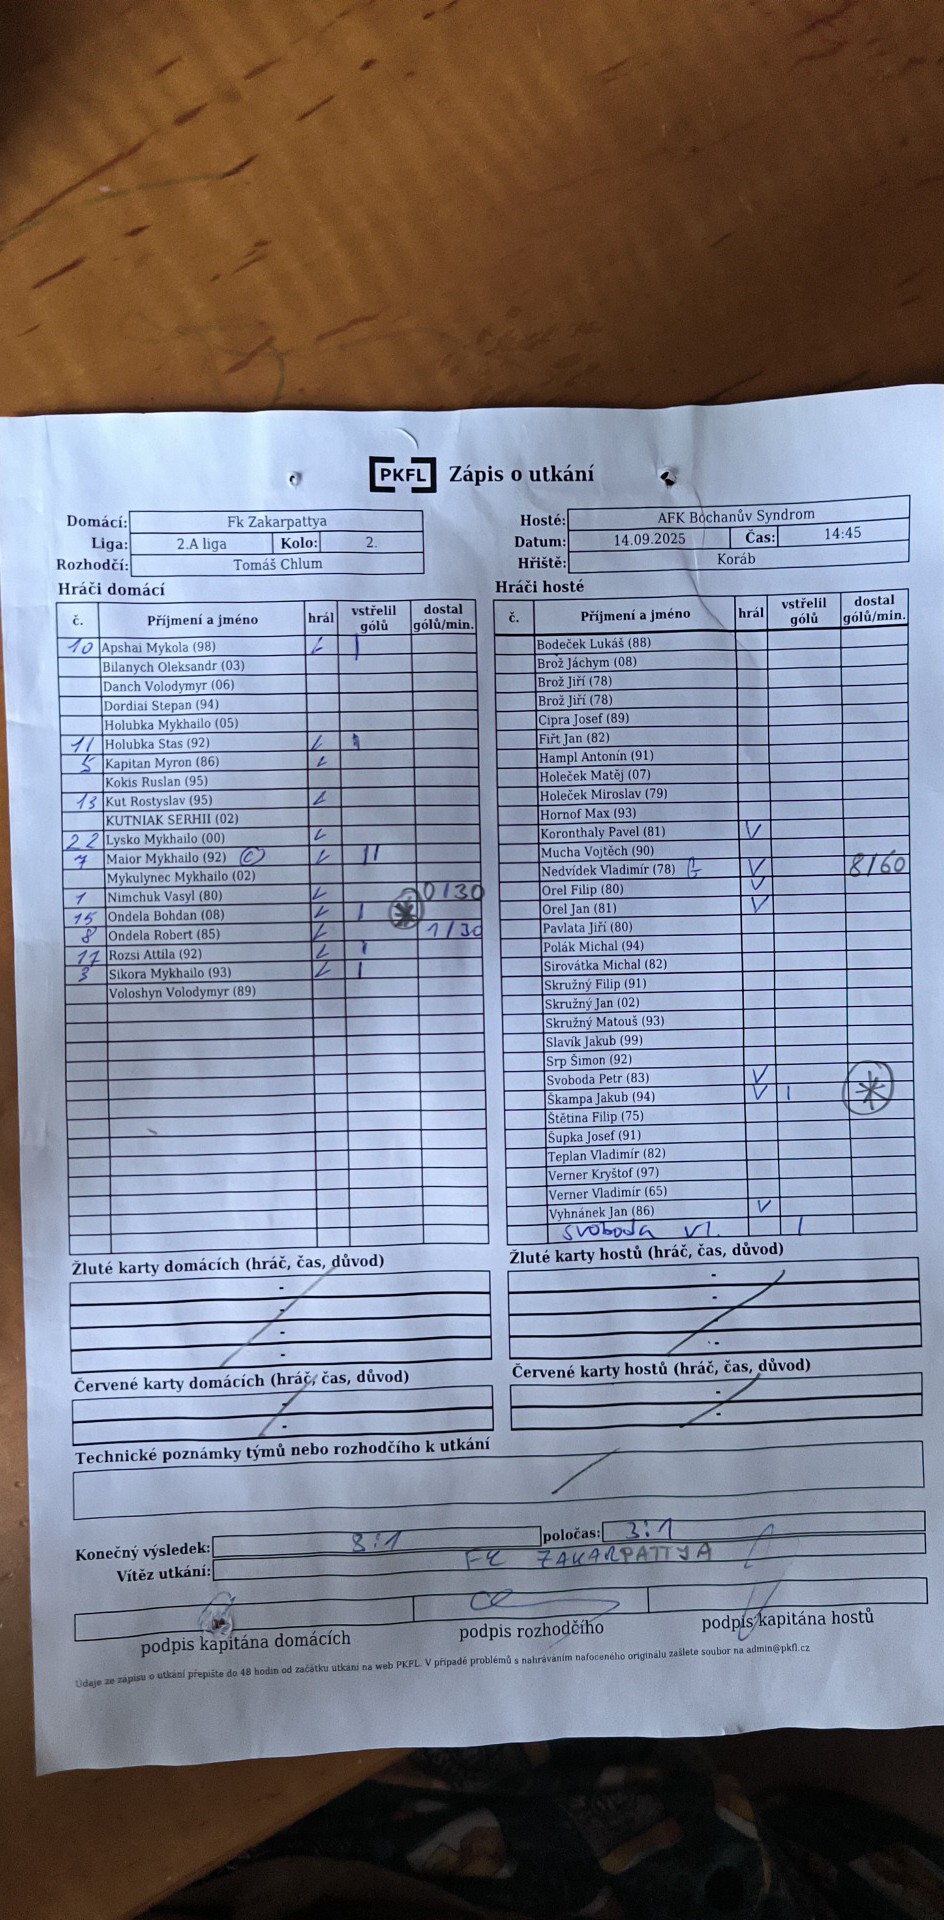 PKFL Zápis o utkání
Domácí: Fk Zakarpattya
Liga: 2.A liga Kolo: 2.
Rozhodčí: Tomáš Chlum
Hosté: AFK Bochanův Syndrom
Datum: 14.09.2025 Čas: 14:45
Hřiště: Koráb
Hráči domácí
č. Příjmení a jméno hrál vstřelil gólů dostal gólů/min.
10 Apshai Mykola (98) I
Bilanych Oleksandr (03)
Danch Volodymyr (06)
Dordiai Stepan (94)
Holubka Mykhailo (05)
11 Holubka Stas (92) I
5 Kapitan Myron (86)
Kokis Ruslan (95)
13 Kut Rostyslav (95)
KUTNIAK SERHII (02)
22 Lysko Mykhailo (00)
7 Maior Mykhailo (92) C II
Mykulynec Mykhailo (02)
1 Nimchuk Vasyl (80) 0/30
15 Ondela Bohdan (08) I
8 Ondela Robert (85) 1/30
17 Rozsi Attila (92) I
3 Sikora Mykhailo (93) I
Voloshyn Volodymyr (89)
Hráči hosté
č. Příjmení a jméno hrál vstřelil gólů dostal gólů/min.
Bodeček Lukáš (88)
Brož Jáchym (08)
Brož Jiří (78)
Brož Jiří (78)
Cipra Josef (89)
Fiřt Jan (82)
Hampl Antonín (91)
Holeček Matěj (07)
Holeček Miroslav (79)
Hornof Max (93)
Koronthaly Pavel (81)
Mucha Vojtěch (90)
Nedvídek Vladimír (78) G 8/60
Orel Filip (80)
Orel Jan (81)
Pavlata Jiří (80)
Polák Michal (94)
Sirovátka Michal (82)
Skružný Filip (91)
Skružný Jan (02)
Skružný Matouš (93)
Slavík Jakub (99)
Srp Šimon (92)
Svoboda Petr (83)
Škampa Jakub (94) I
Štětina Filip (75)
Šupka Josef (91)
Teplan Vladimír (82)
Verner Kryštof (97)
Verner Vladimír (65)
Vyhnánek Jan (86)
Svoboda Vl. I
Žluté karty domácích (hráč, čas, důvod)
-
-
-
-
Žluté karty hostů (hráč, čas, důvod)
-
-
-
Červené karty domácích (hráč, čas, důvod)
-
-
Červené karty hostů (hráč, čas, důvod)
-
-
Technické poznámky týmů nebo rozhodčího k utkání
Konečný výsledek: 8:1 poločas: 3:1
Vítěz utkání: FK ZAKARPATTYA
podpis kapitána domácích podpis rozhodčího podpis kapitána hostů
Údaje ze zápisu o utkání přepište do 48 hodin od začátku utkání na web PKFL. V případě problémů s nahráváním nafoceného originálu zašlete soubor na admin@pkfl.cz